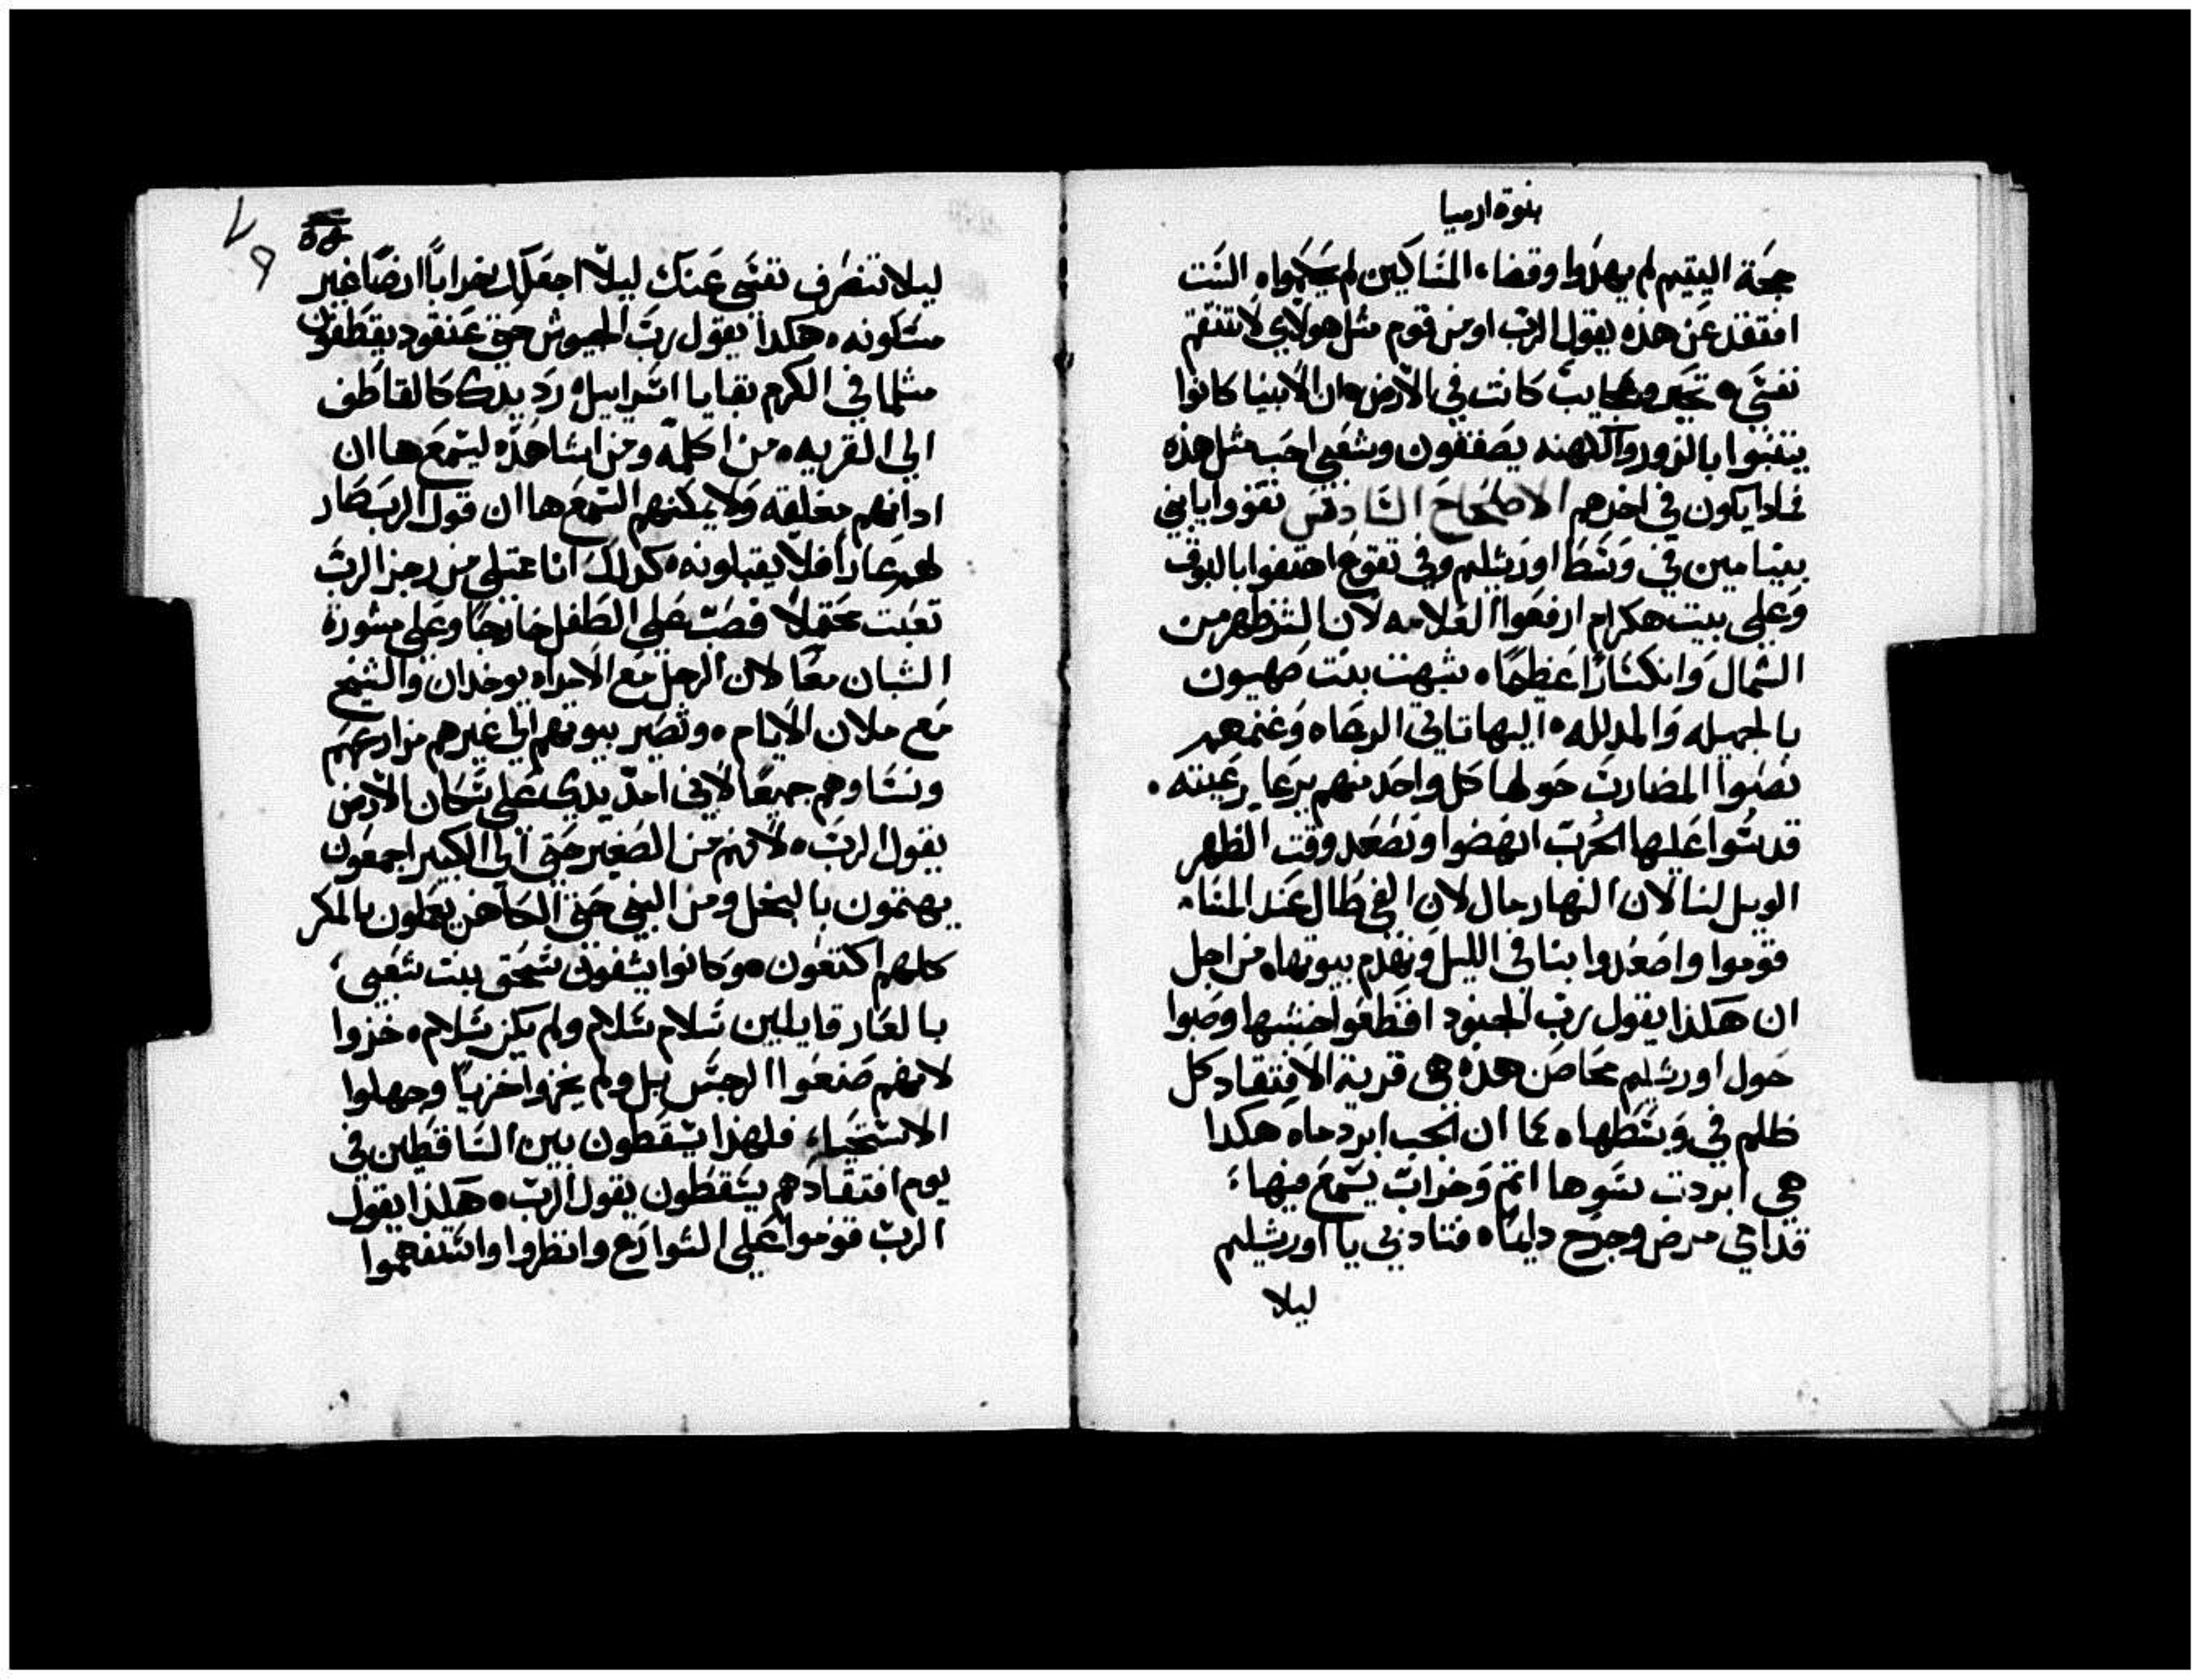 بنوة ارميا
حجة اليتيم لم يهدوا وقضاء المساكين لم يحكموا ه الست
افتقد عن هذه يقول الرب او من قوم مثل هولاي لا تنتقم
نفسي ه تحير وعجايب كانت في الارض ه ان الانبيا كانوا
يتنبوا بالزور والكهنه يصفقون وشعبي احب مثل هذه
فماذا يكون في اخرهم الاصحاح السادس تقووا يا بني
بنيامين في وسط اورشليم وفي تقوع اهتفوا بالبوق
وعلي بيت هكرام ارفعوا العلامه لان الشر ظهر من
الشمال وانكسارا عظيما ه شبهت بنت صهيون
بالجميله والمدلله ه اليها تاتي الرعاه وغنمهم
نصبوا المضارب حولها كل واحد منهم يرعا رعيته ه
قدسوا عليها الحرب انهضوا ونصعد وقت الظهر
الويل لنا لان النهار مال لان الفي طال عند المساء
قوموا واصعدوا بنا في الليل ونهدم بيوتها ه من اجل
ان هكذا يقول رب الجنود اقطعوا خشبها وصبوا
حول اورشليم محاصن هذه هي قرية الافتقاد كل
ظلم في وسطها ه كما ان الجب ابرد ماه هكدا
هي ابردت سوها اثم وخراب يسمع فيها ه
قدامي مرض وجرح دايما ه فتادبي يا اورشليم
ليلا
٧٩
ليلا تنصرف نفسي عنك ليلا اجعلك خرابا ارضا غير
مسكونه ه هكدا يقول رب الجيوش حتي عنقود يقطفون
مثلما في الكرم بقايا اسراييل ه رد يدك كالقاطف
الي القريه ه من اكلمه ومن اشاهده ليسمع ها ان
ادانهم مغلقه ولا يمكنهم السمع ها ان قول الرب صار
لهم عارا فلا يقبلونه ه كدلك انا عتلي من رجز الرب
تعبت محتملا فصب علي الطفل خارجا وعلي مشورة
الشبان معا لان الرجل مع الامراه يوخدان والشيخ
مع ملان الايام ه وتصير بيوتهم الي غيرهم مزارعهم
ونساوهم جميعا لاني امد يدي علي سكان الارض
يقول الرب ه لانهم من الصغير حتي الي الكبير اجمعون
يهتمون بالبخل ومن النبي حتي الكاهن يعملون بالمكر
كلهم اكتعون ه وكانوا يشفون سحق بنت شعبي
بالعار قايلين سلام سلام ولم يكن سلام ه خزوا
لانهم صنعوا الرجس بل ولم يخزوا خزيا وجهلوا
الاستحيا فلهذا يسقطون بين الساقطين في
يوم افتقادهم يسقطون يقول الرب ه هكذا يقول
الرب قوموا علي الشوارع وانظروا واستفهموا